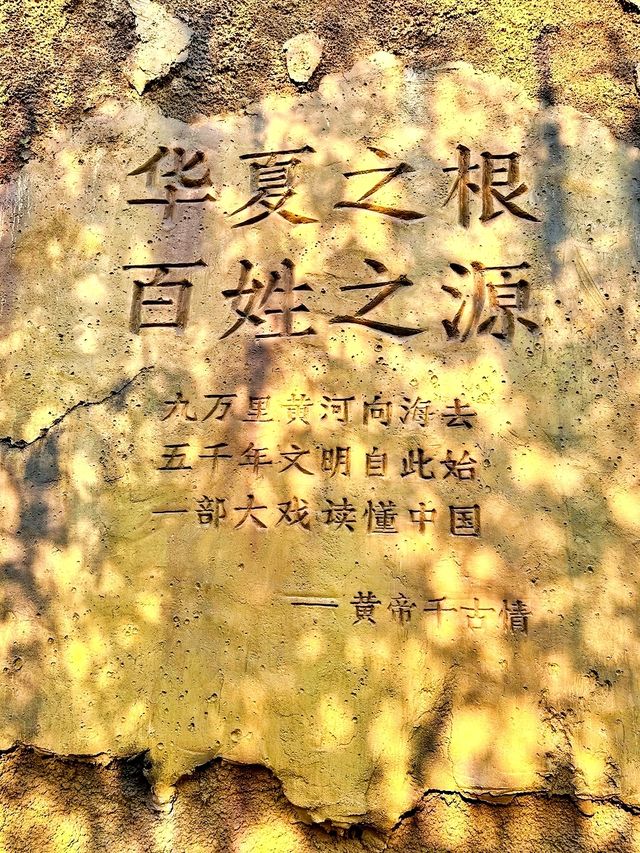 华夏之根
百姓之源
九万里黄河向海去
五千年文明自此始
一部大戏读懂中国
——黄帝千古情